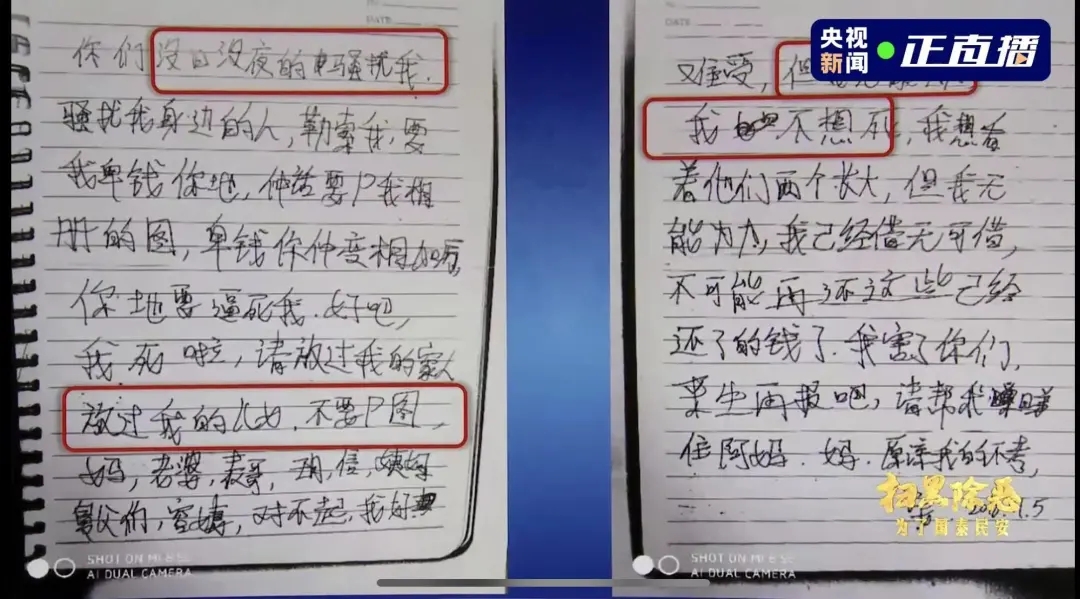 你们没日没夜的电骚扰我.
骚扰我身边的人,勒索我,要
我卑钱你地,仲话要P我相
册的图,卑钱你仲变相如厉
你地要逼死我.好吧,
我死啦,请放过我的家人
放过我的儿女.不要P图,
妈,老婆,表哥,玥,信,姨妈
舅父们,对不起,我好
SHOT ON MI 8 SE
AI DUAL CAMERA
DATE
央视新闻 正直播
难受,但
我 不想死,我想看
着他们两个长大,但我无
能为力,我己经借无可借,
不可能再还这些己经
还了的钱了.我害了你们,
来生再报吧,请帮我
住阿妈.妈.原谅我的不孝,
1.5
扫黑除恶
为了国泰民安
SHOT ON MI 8 SE
AI DUAL CAMERA